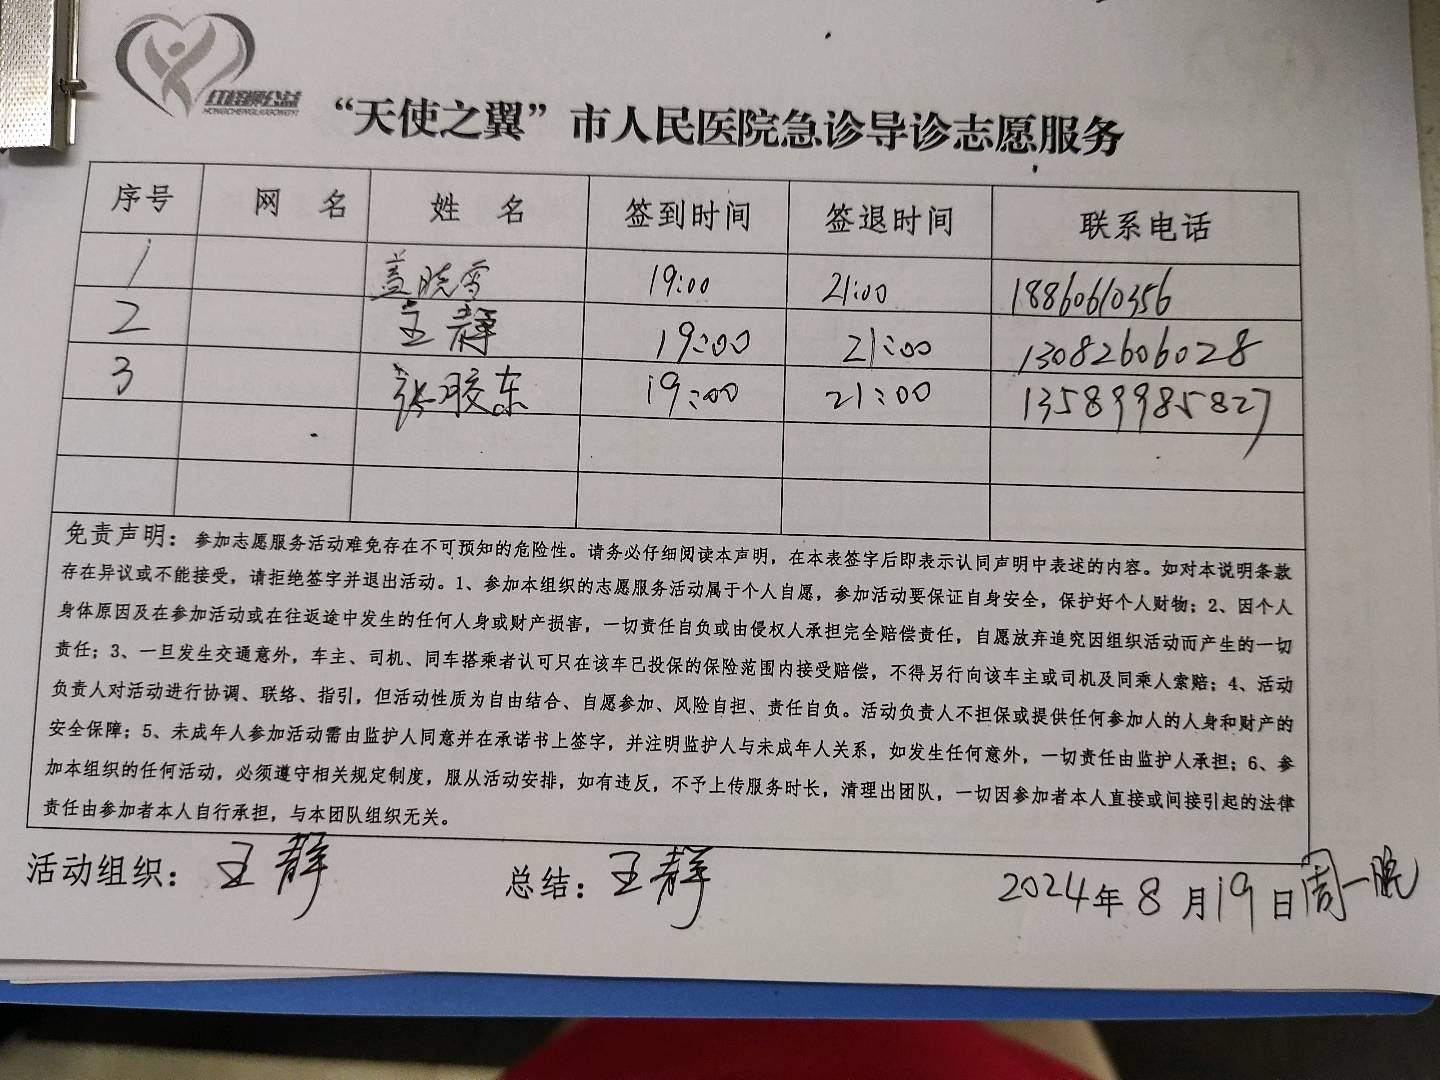 红橙绿公益
HONGCHENGLVGONGYI
“天使之翼”市人民医院急诊导诊志愿服务
序号 网 名 姓 名 签到时间 签退时间 联系电话
1 盖晓雪 19:00 21:00 18860610356
2 王静 19:00 21:00 13082606028
3 张胶东 19:00 21:00 13589985827
免责声明：参加志愿服务活动难免存在不可预知的危险性。请务必仔细阅读本声明，在本表签字后即表示认同声明中表述的内容。如对本说明条款
存在异议或不能接受，请拒绝签字并退出活动。1、参加本组织的志愿服务活动属于个人自愿，参加活动要保证自身安全，保护好个人财物；2、因个人
身体原因及在参加活动或在往返途中发生的任何人身或财产损害，一切责任自负或由侵权人承担完全赔偿责任，自愿放弃追究因组织活动而产生的一切
责任；3、一旦发生交通意外，车主、司机、同车搭乘者认可只在该车已投保的保险范围内接受赔偿，不得另行向该车主或司机及同乘人索赔；4、活动
负责人对活动进行协调、联络、指引，但活动性质为自由结合、自愿参加、风险自担、责任自负。活动负责人不担保或提供任何参加人的人身和财产的
安全保障；5、未成年人参加活动需由监护人同意并在承诺书上签字，并注明监护人与未成年人关系，如发生任何意外，一切责任由监护人承担；6、参
加本组织的任何活动，必须遵守相关规定制度，服从活动安排，如有违反，不予上传服务时长，清理出团队，一切因参加者本人直接或间接引起的法律
责任由参加者本人自行承担，与本团队组织无关。
活动组织：王静 总结：王静 2024年8月19日周一晚